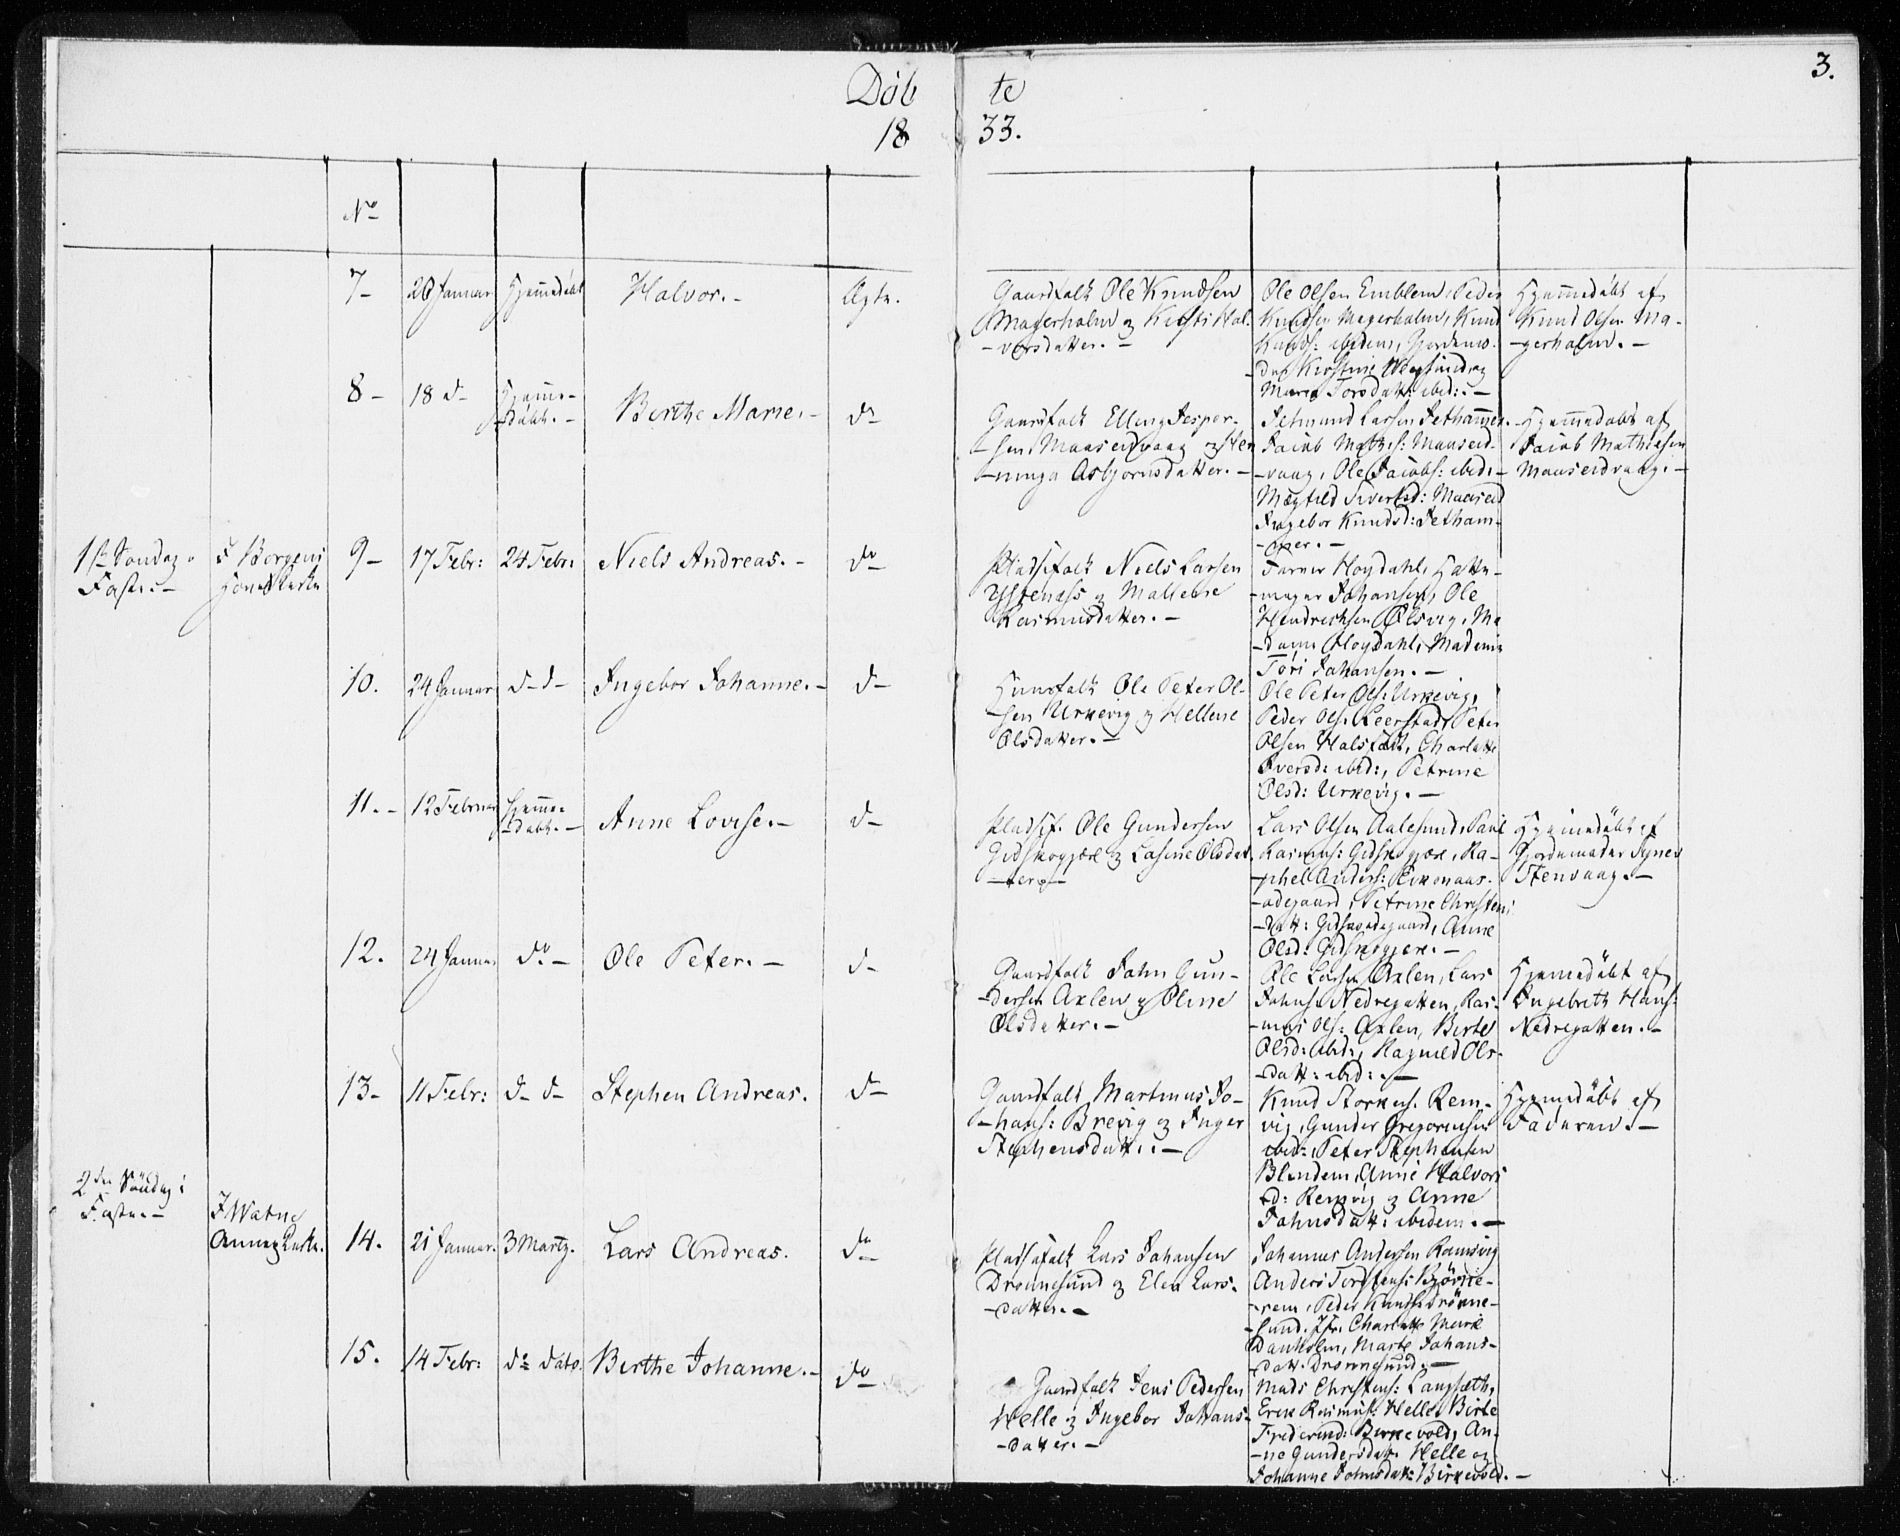 Döb te
3.
18 33.
No
7-
20 Januar
Hjemedöbt
Halvor.-
Ægte.
Gaardfolk Ole Knudsen
Magerholm og Kirsti Hal-
-vorsdatter.-
Ole Olsen Emblem, Peder
Knudsen Magerholm, Knud
Knuds: ibidem, Gjordemo-
Maria Torsdatt: ibid:-
Hjemmedöbt af
Knud Olsen Ma-
-gerholm.-
8-
18 d-
Hjemme-
-döbt.-
Berthe Marie.-
do
Gaardfolk Elling Jesper-
-sen Maaseidvaag og Hen
-ninga Asbjornsdatter.-
Jetmund Larsen Jethammer.
Jacob Mathis: Maaseid-
-vaag, Ole Jacobs: ibid:-
Mægtild Sivertsd: Maaseid
Ingebor Knudsd: Jetham-
-mer.-
Hjemmedöbt af
Jacob Mathiesen
Maaseidvaag.-
1ste Söndag i
Faste.-
i Borgens
Hoved Kirke
9-
17 Febr:
24 Febr:
Niels Andreas.-
do
Pladsfolk Niels Larsen
Ystenæss og Mallene
Rasmusdatter.-
Farver Hoydahl, Hatte-
-mager Johansen, Ole
Hendrichsen Olsvig, Ma
-dame Hoydahl, Madame
Töri Johansen.-
10.
24 Januar
d- d-
Ingebor Johanne.-
d-
Huusfolk Ole Peter Ol-
-sen Urkevig og Hellene
Olsdatter.-
Ole Peter Ols: Urkevig,
Peder Ols: Leerstad, Peter
Olsen Halsfæt, Charlotte
Iversd: ibid:, Petrine
Olsd: Urkevig.-
11.-
12 Februar
Hjemme-
-döbt.-
Anne Lovise.-
d-
Pladsf. Ole Gundersen
Gidskogjære og Lasine Olsdat
-ter.-
Lars Olsen Aalesund, Paul
Rasmus: Gidskogjære, Ra-
-phel Anders: Eikenaas-
-odegaard, Petrine Christens
-datt: Gidskeodegaard, Anne
Olsd: Gidskogjære.-
Hjemmedöbt af
Gjordemoder Synev
Stenvaag.-
12.
24 Januar
do-
Ole Peter.-
d-
Gaardfolk John Gun-
-dersen Axlen og Oline
Olsdatter.-
Ole Larsen Axlen, Lars
Johnsen Nedregatten, Ras-
-mus Ols: Axlen, Birte
Olsd: ibid:, Ragnild Ols-
-datt: ibid:.-
Hjemmedöbt af
Ingebreth Hans:
Nedregatten.-
13-
11 Febr:
d- d-
Stephen Andreas.
d-
Gaardfolk Martinus Jo-
-hans: Brevig og Inger
Stephensdatt:.-
Knud Storkers. Rem-
vig, Gunder Gregoriussen
ibid:, Peter Stephensen
Blindem, Anne Halvors
d: Remvig og Anne
Johnsdatt: ibidem.-
Hjemmedöbt af
Faderen.-
2den Söndag i
Faste.-
I Watne
Annex Kirke.
14.
21 Januar.
3 Martz.
Lars Andreas.
do
Pladsfolk Lars Johansen
Dronnesund og Elen Lars-
-datter.-
Johannes Andersen Ramsvig
Anders Torstens: Björne-
-rem, Peder Knuds: Drönne-
-sund. Jfr. Charlotte Marie
Danholm, Marte Johans-
-datt. Dronnesund.-
15.
14 Febr:
do dato.
Berthe Johanne.-
do
Gaardfolk Jens Pedersen
Helle og Ingebor Johans-
-datter.-
Mads Christens: Langsæth,
Erik Rasmus: Helle, Birte
Frideriksd: Birkevold, An-
-ne Gundersdatt. Helle og
Johanne Johnsdatt: Birkevold.-